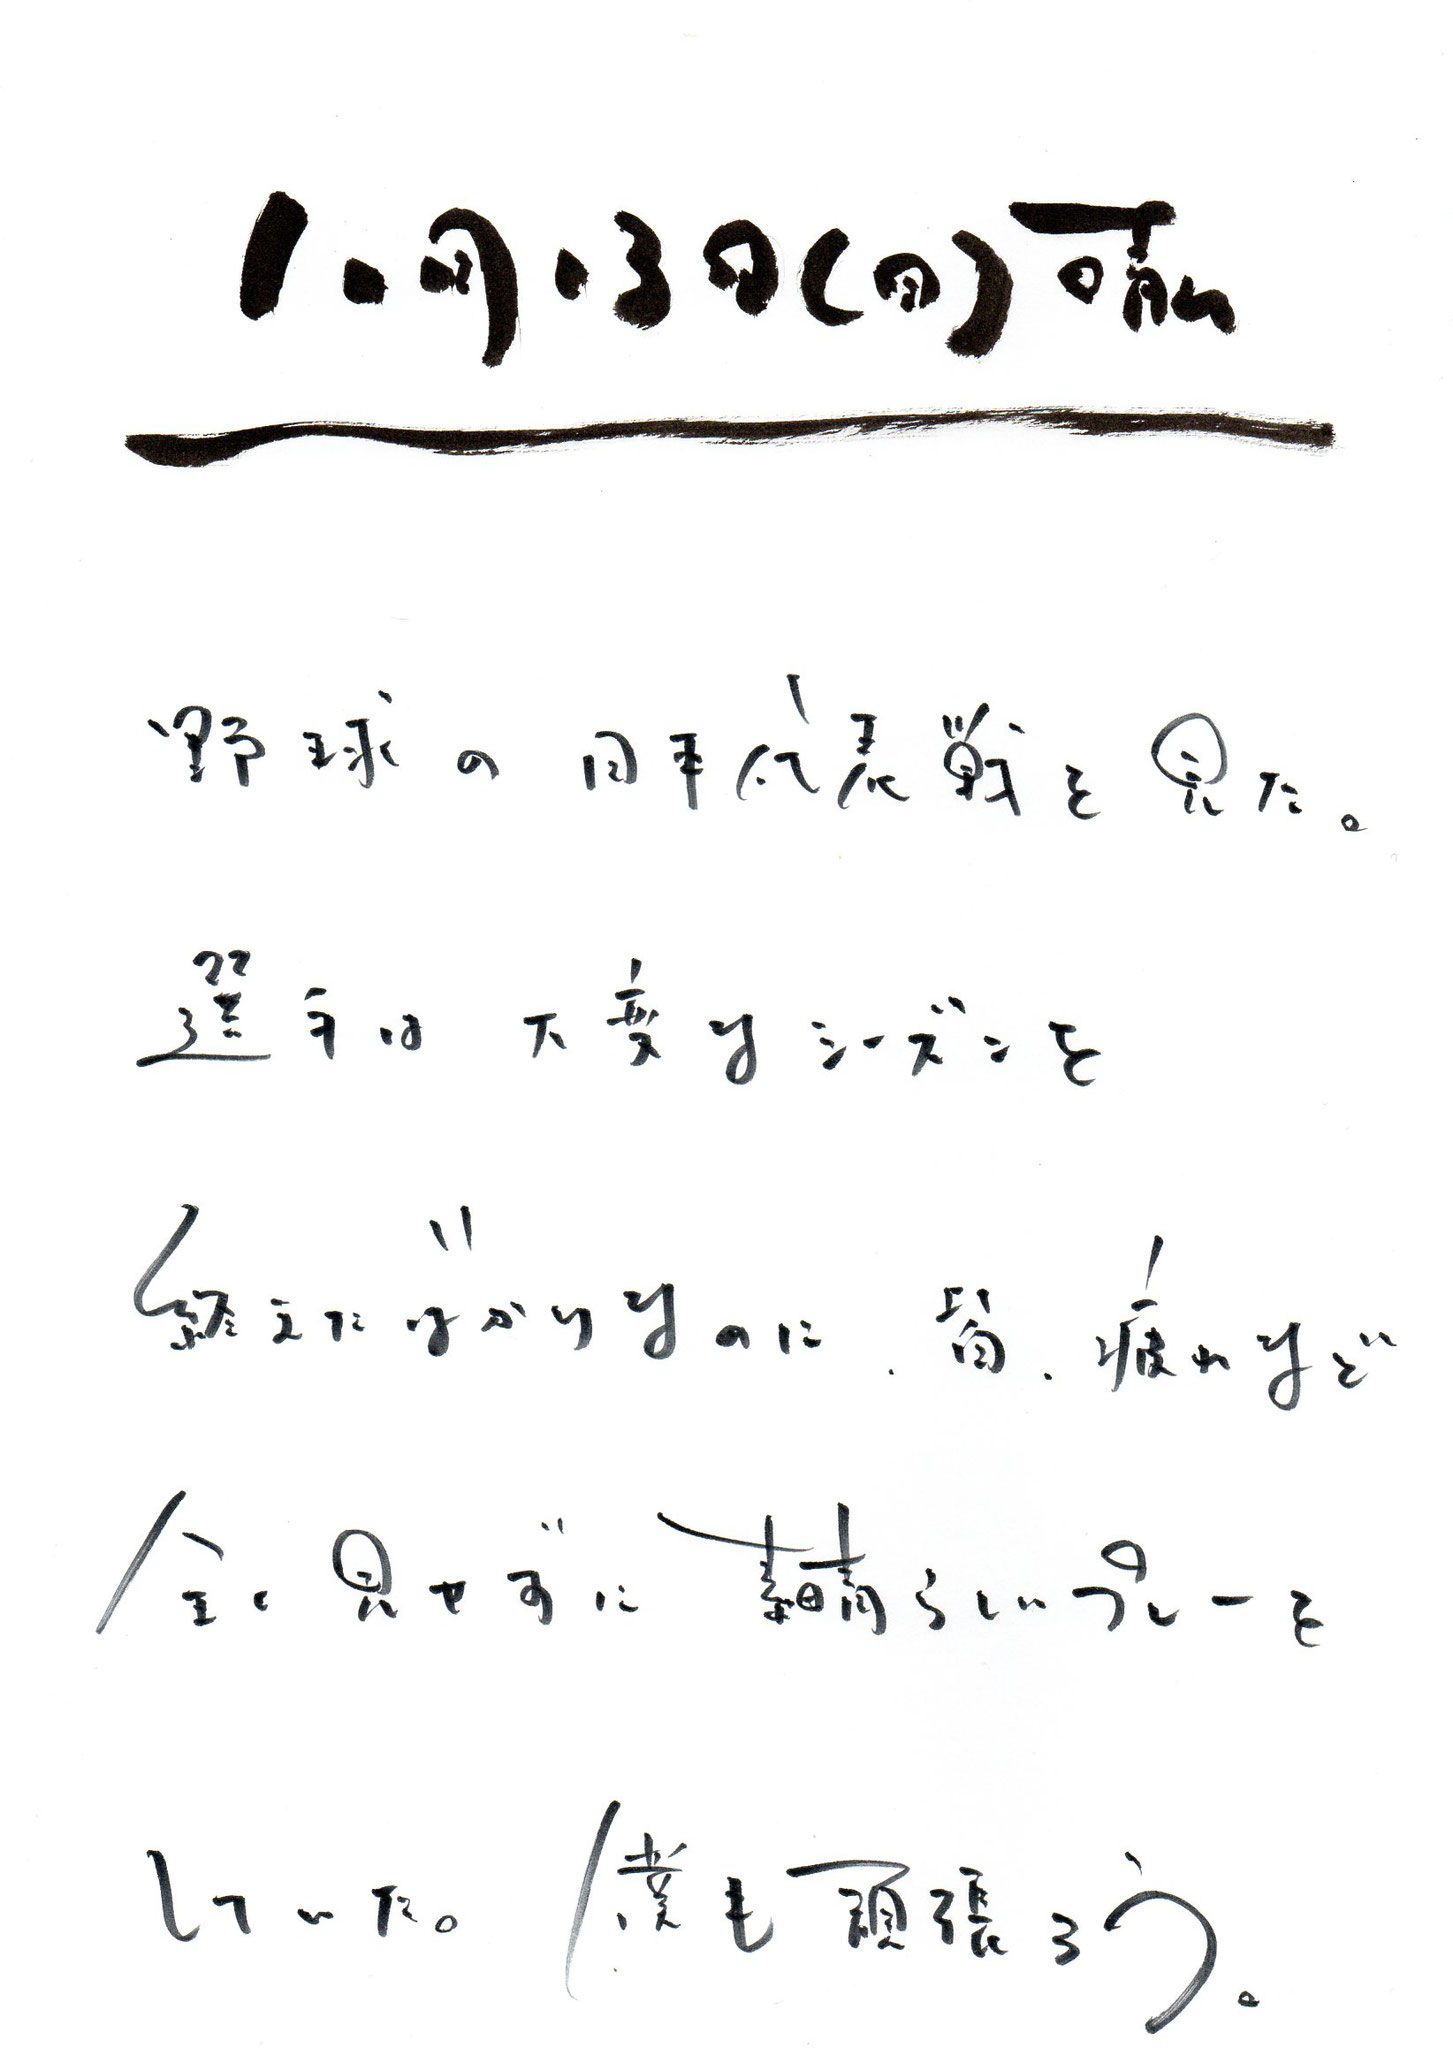 11月13日(日)晴れ
野球の日本代表戦を見た。
選手は大変なシーズンを
終えたばかりなのに、皆、疲れなど
全く見せずに素晴らしいプレーを
していた。僕も頑張ろう。